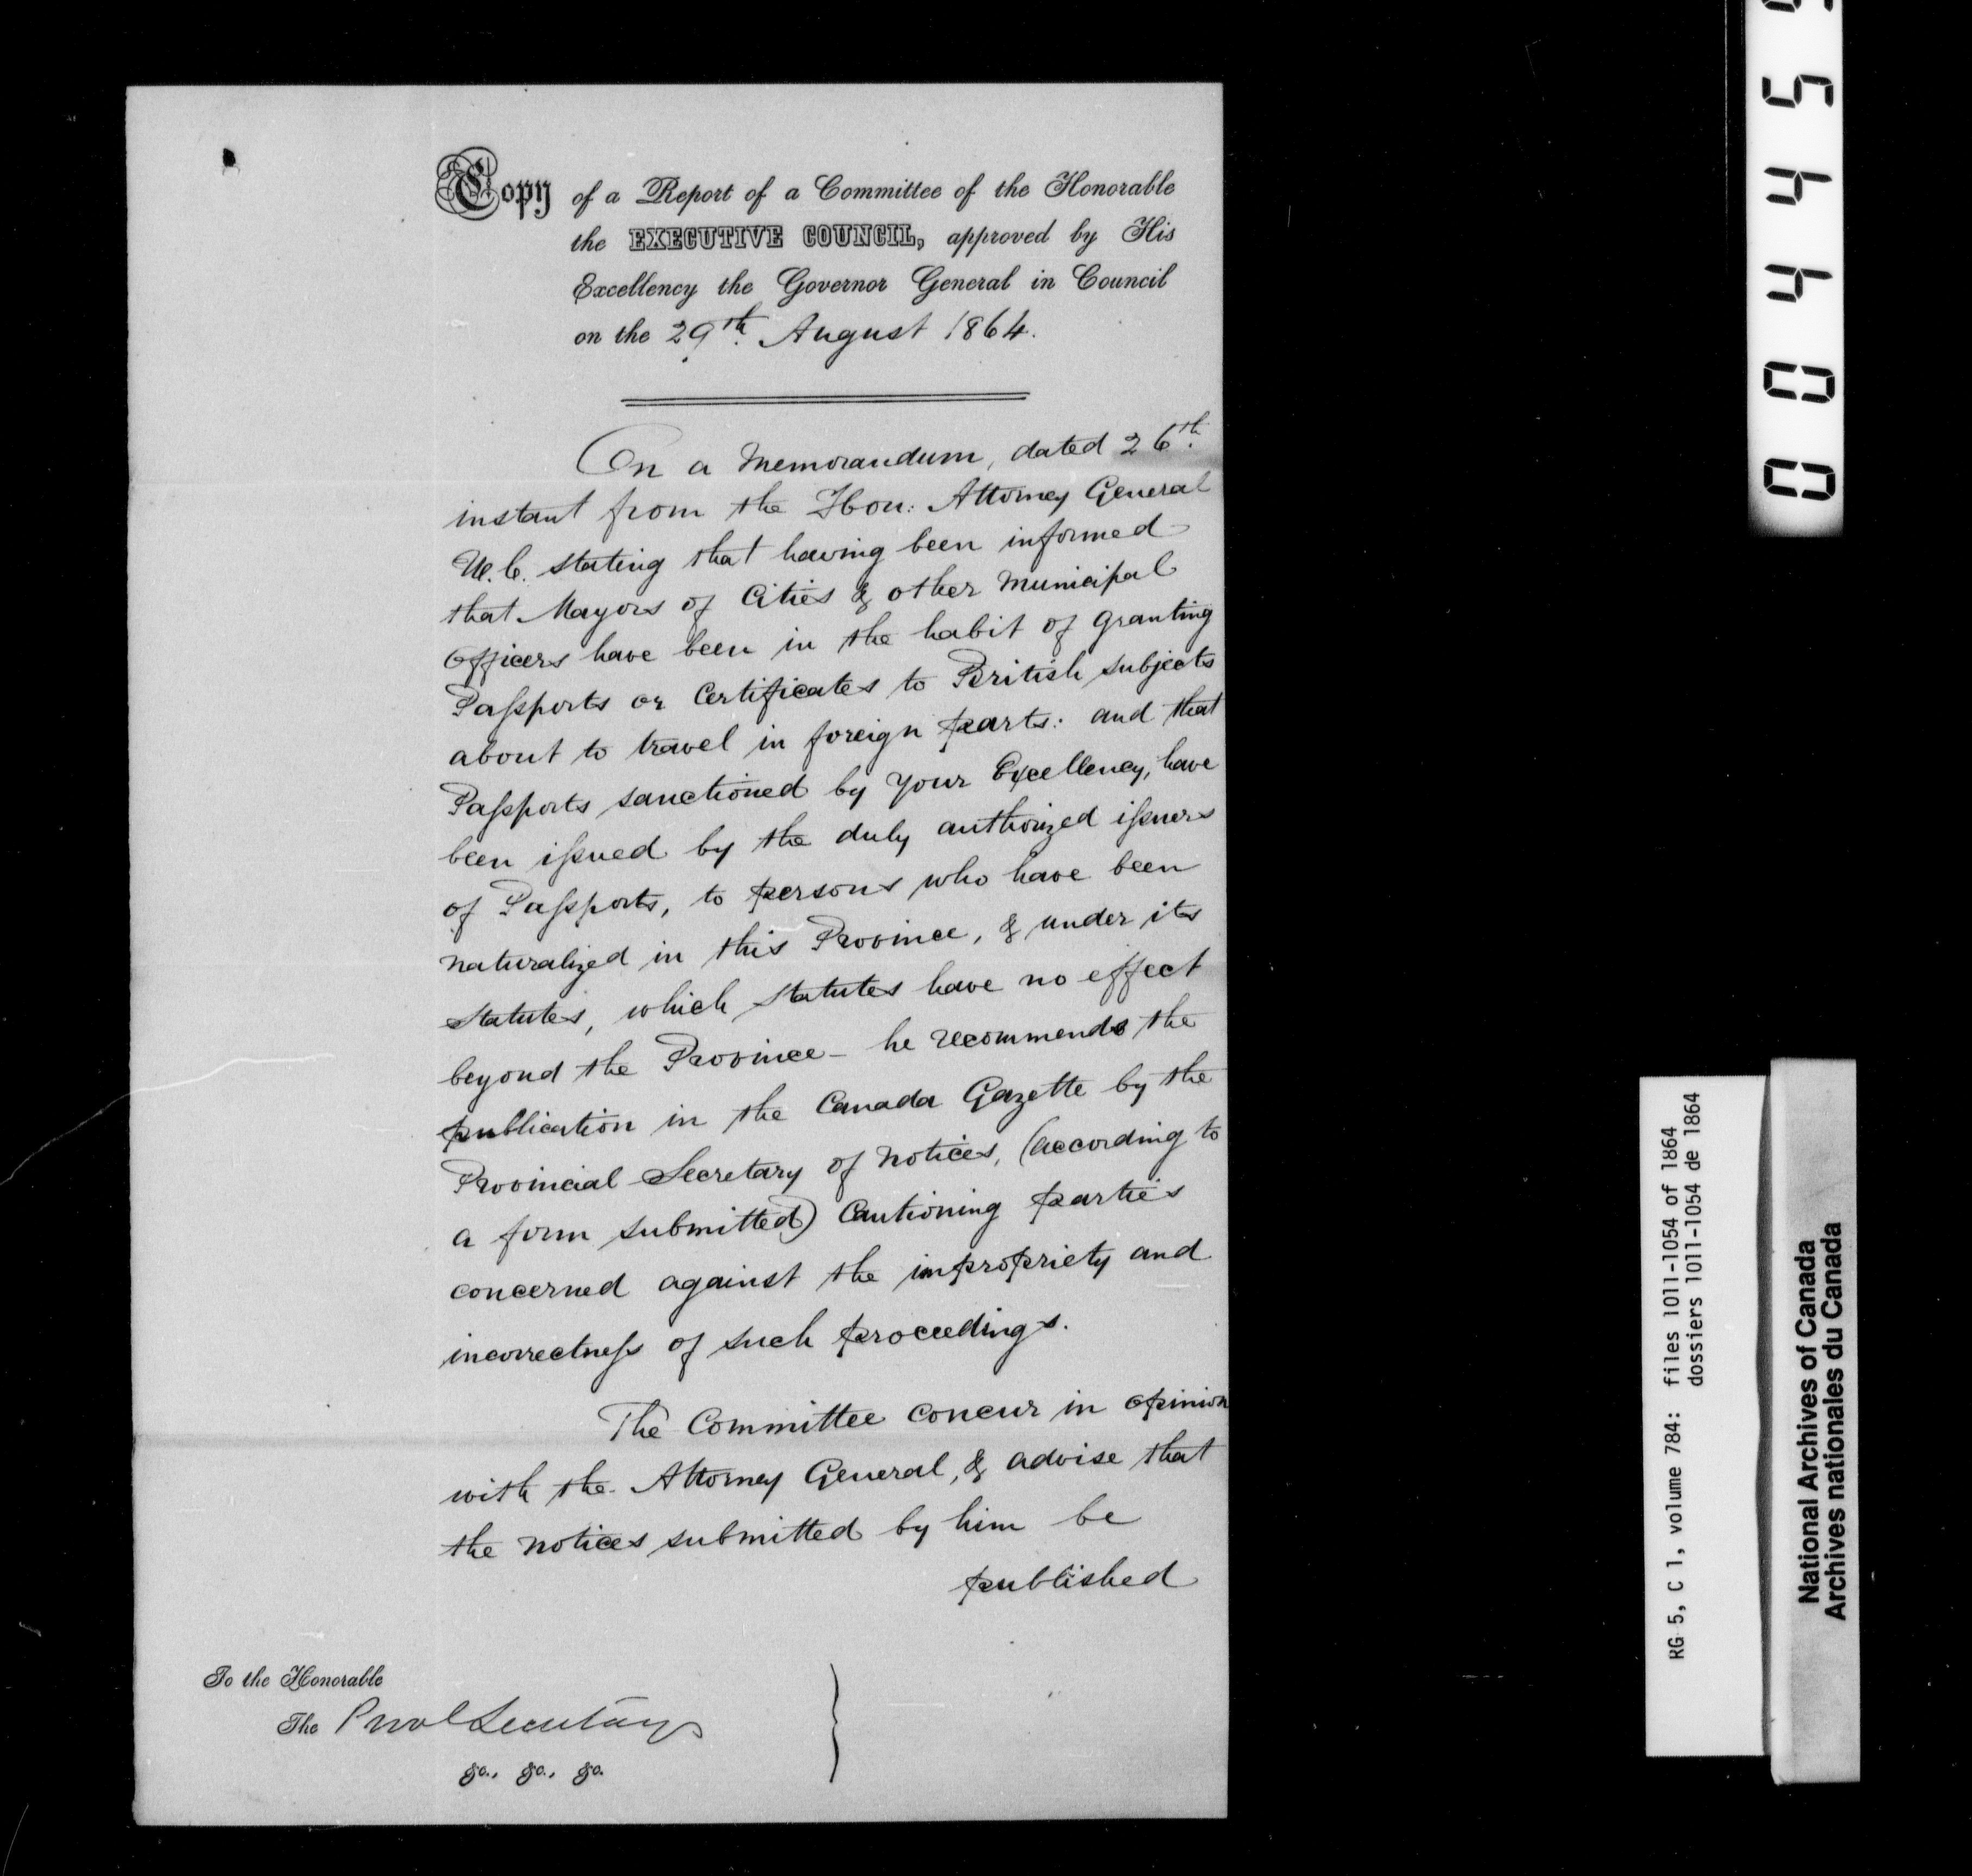 Copy of a Report of a Committee of the Honorable
the EXECUTIVE COUNCIL, approved by His
Excellency the Governor General in Council
on the 29th. August 1864.
On a Memorandum, dated 26th.
instant from the Hon: Attorney General
U.C. stating that having been informed
that Mayors of Cities & other Municipal
Officers have been in the habit of granting
Paſsports or Certificates to British subjects
about to travel in foreign parts: and that
Paſsports sanctioned by Your Excellency, have
been iſsued by the duly authorized iſsuers
of Paſsports, to persons who have been
naturalized in this Province, & under its
statutes, which statutes have no effect
beyond the Province - he recommends the
publication in the Canada Gazette by the
Provincial Secretary of notices, (according to
a form submitted) Cautioning parties
concerned against the impropriety and
incorrectneſs of such proceedings.
The Committee concur in opinion
with the Attorney General, & advise that
the notices submitted by him be
published
To the Honorable
The Provl Secretary
&c., &c., &c.
0 0 4 4 5
RG 5, C 1, volume 784: files 1011-1054 of 1864
dossiers 1011-1054 de 1864
National Archives of Canada
Archives nationales du Canada